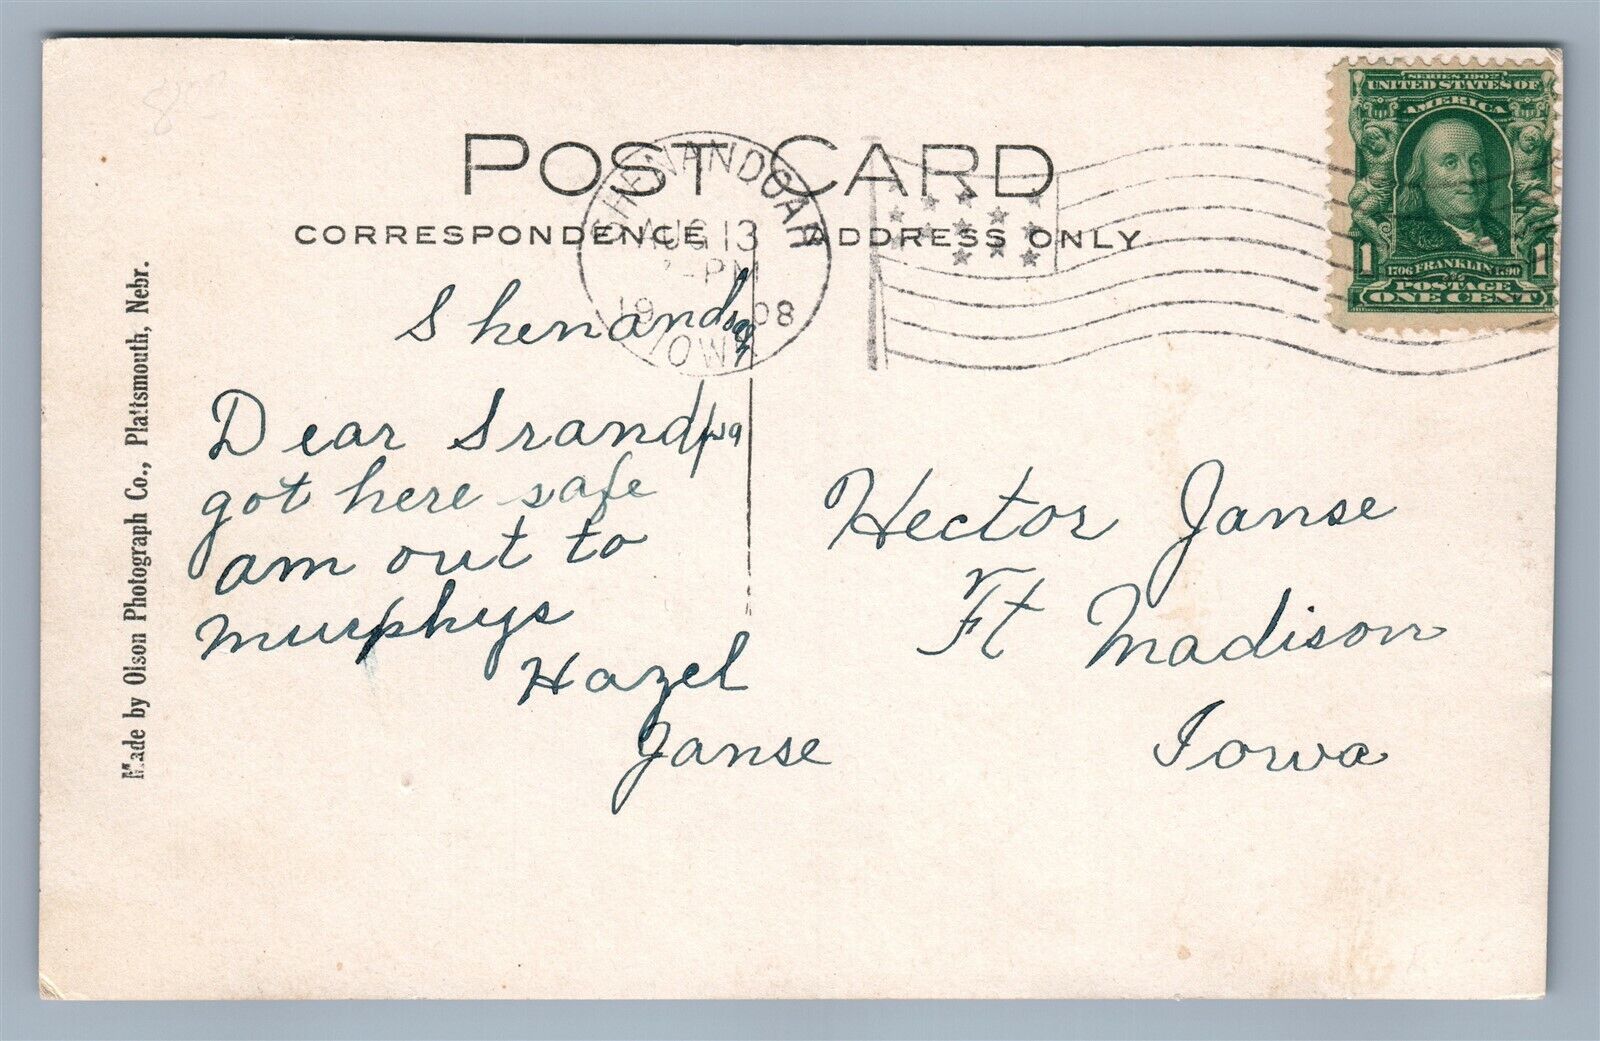 POST CARD
CORRESPONDENCE ADDRESS ONLY
SHENANDOAH
AUG 13
-PM
1908
IOWA
SERIES 1902
UNITED STATES OF
AMERICA
1 1706 FRANKLIN 1790 1
POSTAGE
ONE CENT
Made by Olson Photograph Co., Plattsmouth, Nebr.
Shenandoah
Dear Grandpa
got here safe
am out to
murphys
Hazel
Janse
Hector Janse
Ft Madison
Iowa